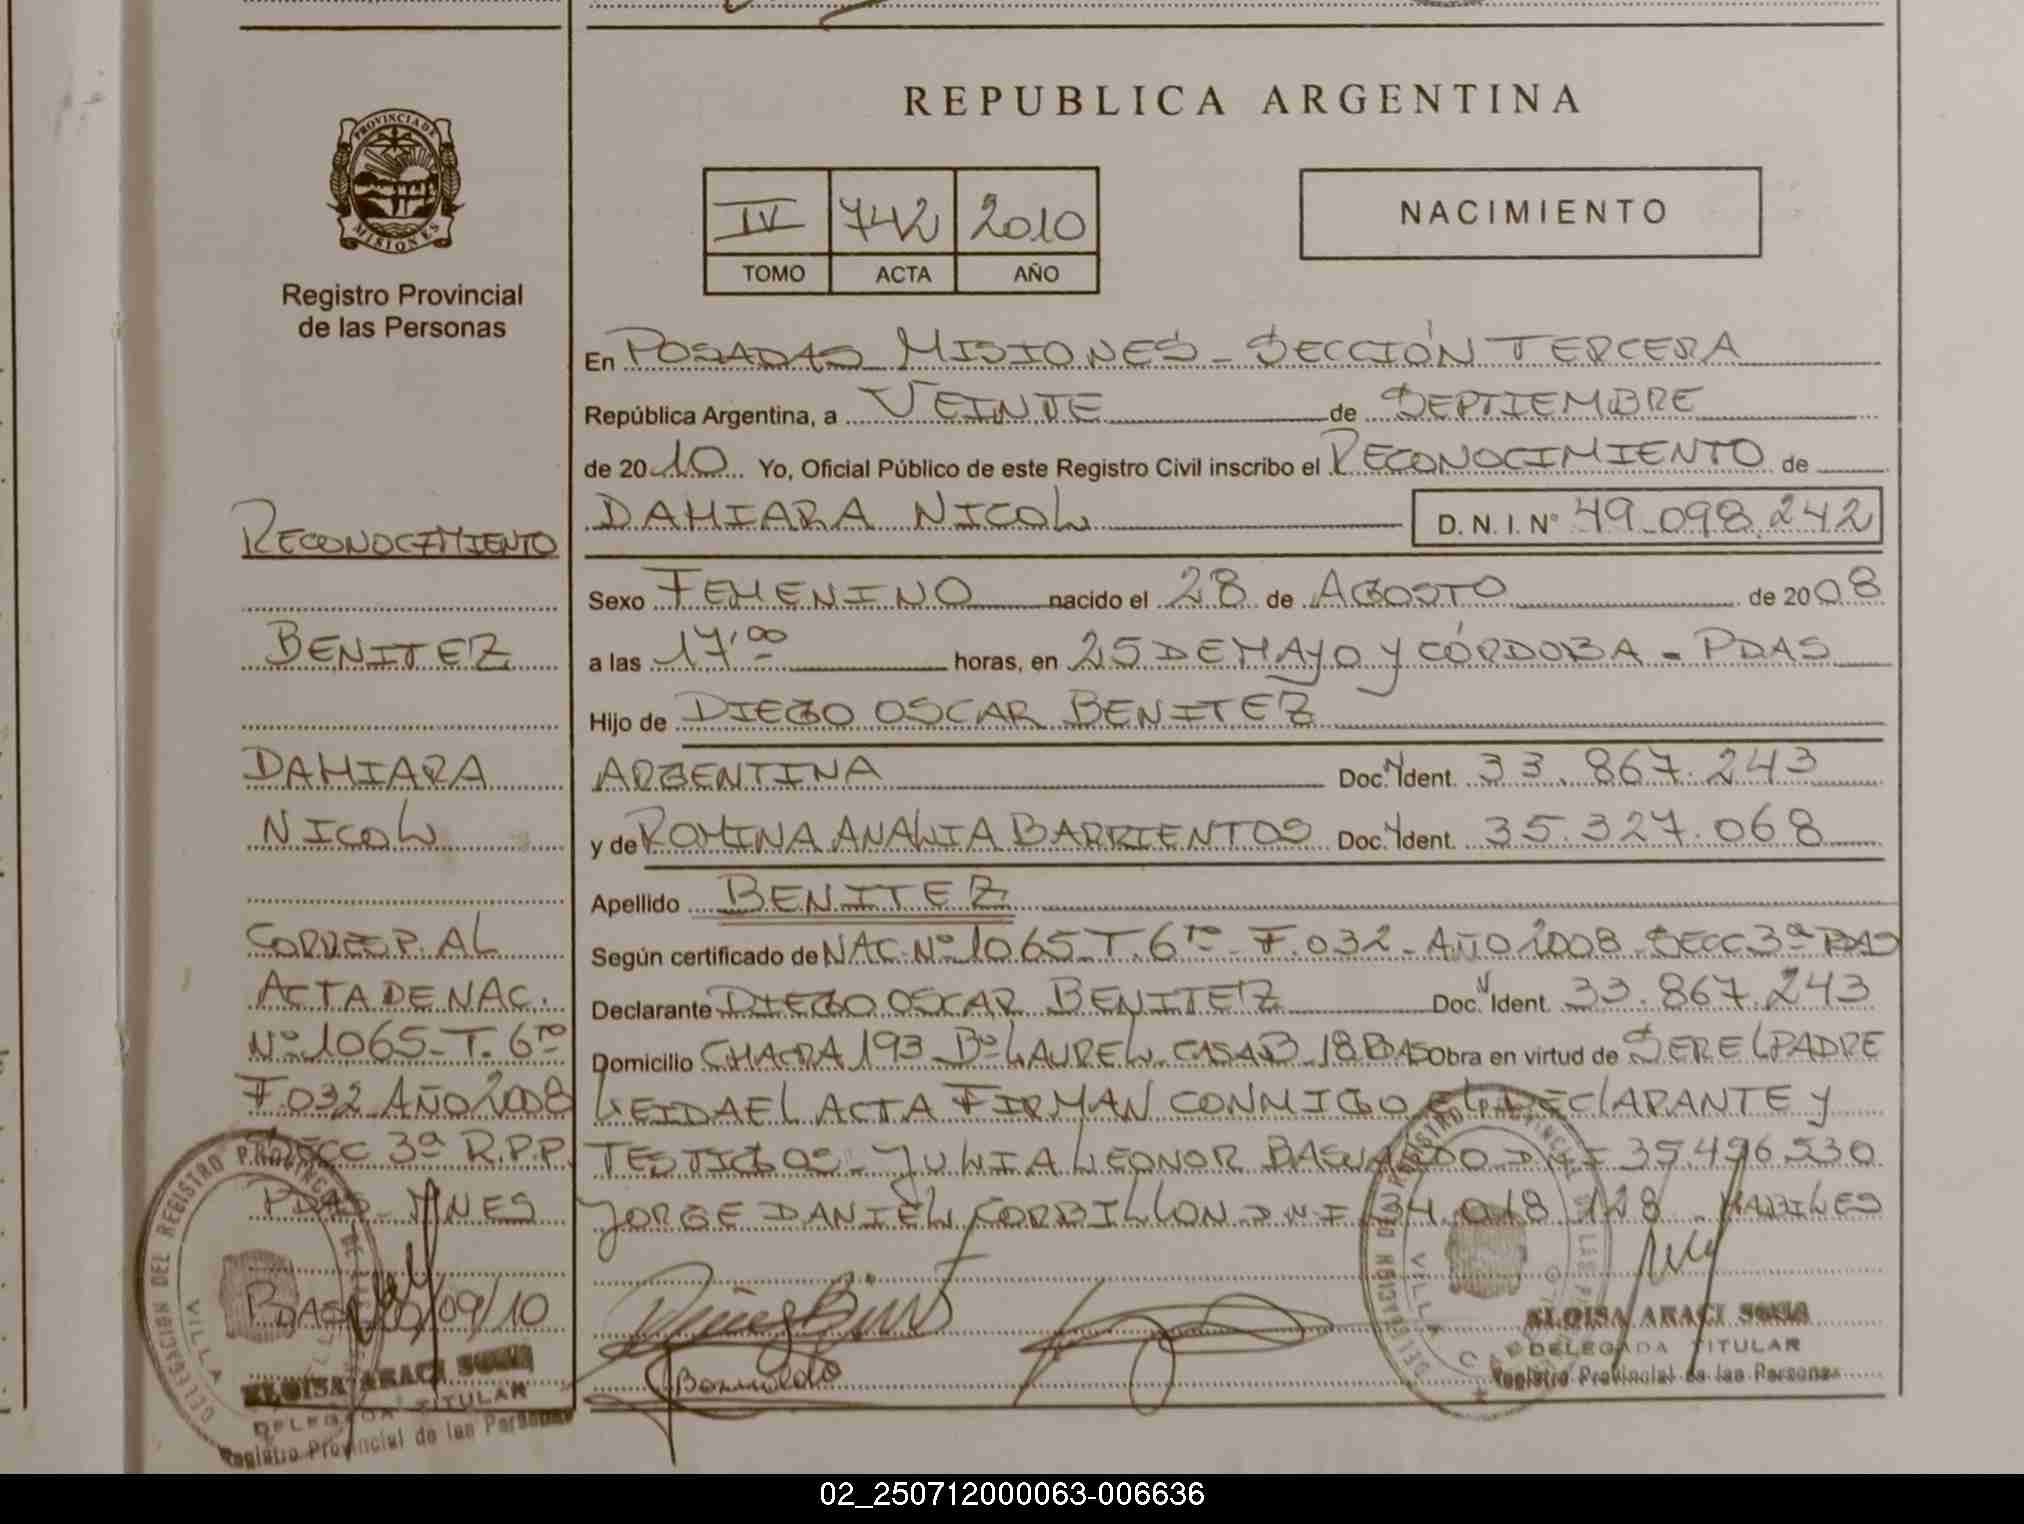 REPUBLICA ARGENTINA
PROVINCIA DE
MISIONES
Registro Provincial
de las Personas
IV 742 2010
TOMO ACTA AÑO
NACIMIENTO
En POSADAS MISIONES - SECCIÓN TERCERA
República Argentina, a VEINTE de SEPTIEMBRE
de 2010 Yo, Oficial Público de este Registro Civil inscribo el RECONOCIMIENTO de
DAMIARA NICOL D. N. I. N° 49.098.242
Sexo FEMENINO nacido el 28 de AGOSTO de 2008
a las 17,00 horas, en 25 DE MAYO Y CÓRDOBA - PDAS
Hijo de DIEGO OSCAR BENITEZ
ARGENTINA Doc. Ident. 33.867.243
y de ROMINA ANALIA BARRIENTOS Doc. Ident. 35.327.068
Apellido BENITEZ
Según certificado de NAC. Nº 1065 - T. 6to - F. 032 - AÑO 2008 - SECC 3ª PDAS
Declarante DIEGO OSCAR BENITEZ Doc. Ident. 33.867.243
Domicilio CHACRA 193 - Bº LAUREL - CASA B - 18 PDAS Obra en virtud de SER EL PADRE
LEIDA EL ACTA FIRMAN CONMIGO EL DECLARANTE Y
TESTIGOS - JULIA LEONOR BASUALDO DNI 35.496.530
JORGE DANIEL CORBILLON DNI 34.018.128
ELOISA ARACI
DELEGADA TITULAR
Registro Provincial de las Personas
RECONOCIMIENTO
BENITEZ
DAMIARA
NICOL
CORRESP. AL
ACTA DE NAC.
Nº 1065 - T. 6to
F. 032 AÑO 2008
SECC 3ª R.P.P.
PDAS - MNES
PDAS 20/09/10
ELOISA ARACI
DELEGADA TITULAR
Registro Provincial de las Personas
DELEGACION DEL REGISTRO PROVINCIAL DE LAS
VILLA
02_250712000063-006636